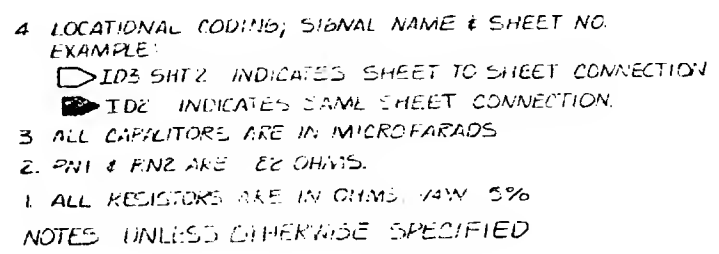 4 LOCATIONAL CODING; SIGNAL NAME & SHEET NO.
EXAMPLE:
ID3 SHT 2 INDICATES SHEET TO SHEET CONNECTION
ID2 INDICATES SAME SHEET CONNECTION.
3 ALL CAPACITORS ARE IN MICROFARADS
2. RN1 & RN2 ARE 22 OHMS.
1. ALL RESISTORS ARE IN OHMS, 1/4W 5%
NOTES UNLESS OTHERWISE SPECIFIED